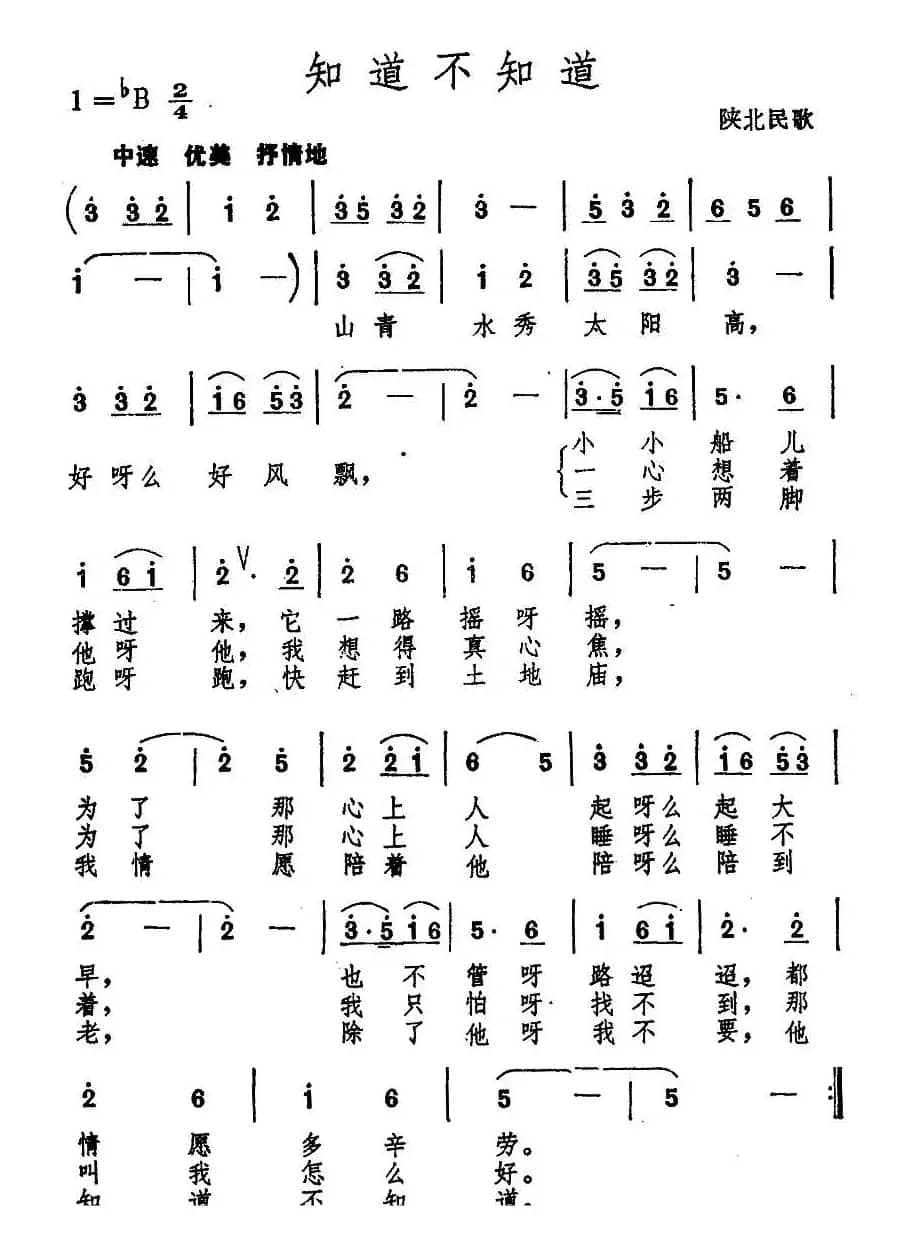 知道不知道
1=♭B 2/4
陕北民歌
中速 优美 抒情地
(3̇ 3̇2̇ | 1̇ 2̇ | 3̇5̇ 3̇2̇ | 3̇ — | 5̇ 3̇ 2̇ | 6 5 6 |
1̇ — | 1̇ —) | 3̇ 3̇2̇ | 1̇ 2̇ | 3̇5̇ 3̇2̇ | 3̇ — |
山青 水秀 太阳 高，
3̇ 3̇2̇ | 1̇6 5̇3̇ | 2̇ — | 2̇ — | 3̇·5̇ 1̇6 | 5· 6 |
小小船儿
好呀么好风飘， 一心想着
三步两脚
1̇ 61̇ | 2̇ⱽ· 2̇ | 2̇ 6 | 1̇ 6 | 5 — | 5 — |
撑过来，它一路摇呀摇，
他呀他，我想得真心焦，
跑呀跑，快赶到土地庙，
5̇ 2̇ | 2̇ 5̇ | 2̇ 2̇1̇ | 6 5 | 3̇ 3̇2̇ | 1̇6 5̇3̇ |
为了那心上人 起呀么起大
为了那心上人 睡呀么睡不
我情愿陪着他 陪呀么陪到
2̇ — | 2̇ — | 3̇·5̇ 1̇6 | 5· 6 | 1̇ 61̇ | 2̇· 2̇ |
早， 也不管呀路迢迢，都
着， 我只怕呀找不到，那
老， 除了他呀我不要，他
2̇ 6 | 1̇ 6 | 5 — | 5 — :‖
情愿多辛劳。
叫我怎么好。
知道不知道。